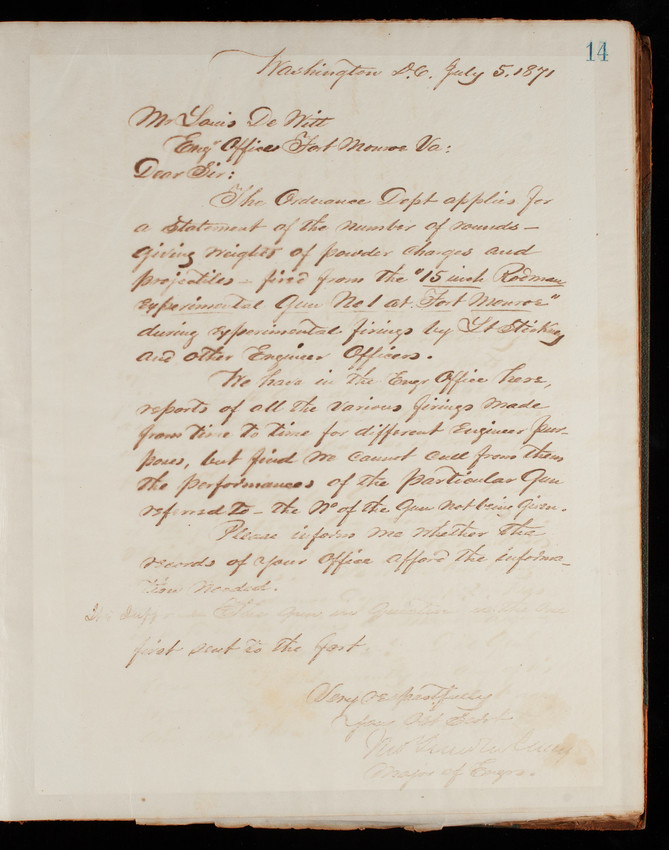 14
Washington D.C. July 5, 1871
Mr Louis De Witt
Engr Office Fort Monroe Va:
Dear Sir:
The Ordnance Dept applies for
a statement of the number of rounds—
giving weights of powder charges and
projectiles — fired from the "15 inch Rodman
Experimental Gun No 1 at Fort Monroe"
during experimental firings by Lt
and other Engineer Officers.
We have in the Engr Office here,
reports of all the various firings made
from time to time for different Engineer pur-
poses, but find we cannot cull from them
the performances of the particular Gun
referred to — the No of the Gun not being given.
Please inform me whether the
records of your Office afford the informa-
tion needed.
The Gun in question
first sent to the Fort.
Very respectfully
Your Obt Servt
Major of Engrs.